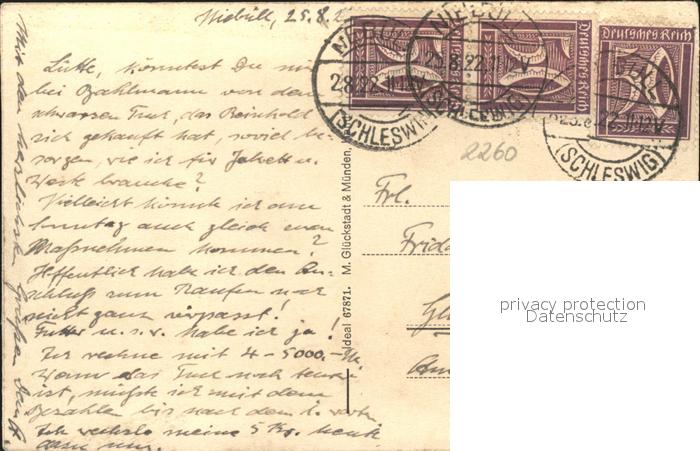 Niebüll, 25.8.2
Lütke, könntest Du mi
bei Bahlmann von dem
schwarzen Tuch, das Reinhold
sich gekauft hat, soviel be-
sorgen, wie ich für Jakett u.
Rock brauche?
Vielleicht könnte ich am
Sonntag auch gleich zum
Maßnehmen kommen?
Hoffentlich habe ich den An-
schluß zum Kaufen noch
nicht ganz verpasst!
Futter u.s.w. habe ich ja!
Ich rechne mit 4-5000,- M.
Wenn das Tuch noch teurer
ist, müßte ich mit dem
Bezahlen bis nach dem 1. warten
Ich wechsle meine 5 Kr.
dann um.
Mit den herzlichsten Grüßen
Ideal 67871. M. Glückstadt & Münden,
NIEBÜLL
25.8.22.11-12V
(SCHLESWIG)
(SCHLESWIG)
(SCHLESWIG)
Deutsches Reich
Deutsches Reich
2260
Frl.
Frida
privacy protection
Datenschutz